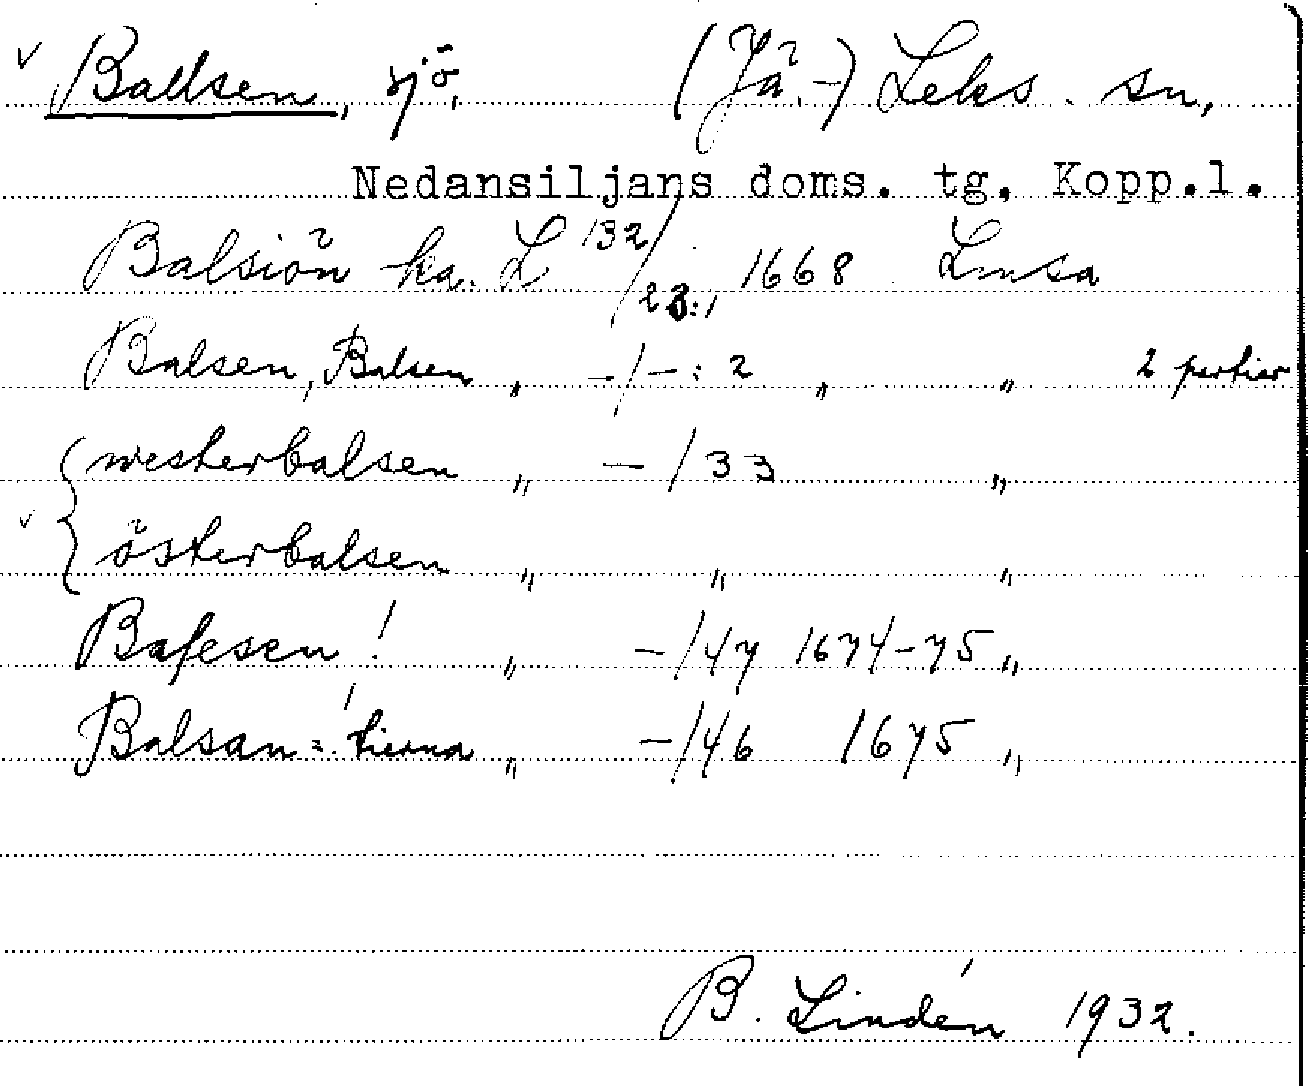 v Ballsen, sjö, (Jä.-) Leks. sn,
Nedansiljans doms. tg. Kopp.l.
Balsiön ka. L 132/23:1 1668 Lmsa
Balsen, Balsen „ -/-: 2 „ „ 2 partier
westerbalsen „ -/33 „
v österbalsen „ „ „
Bafesen! „ -/47 1674-75 „
Balsan=tierna „ -/46 1675 „
B. Lindén 1932.